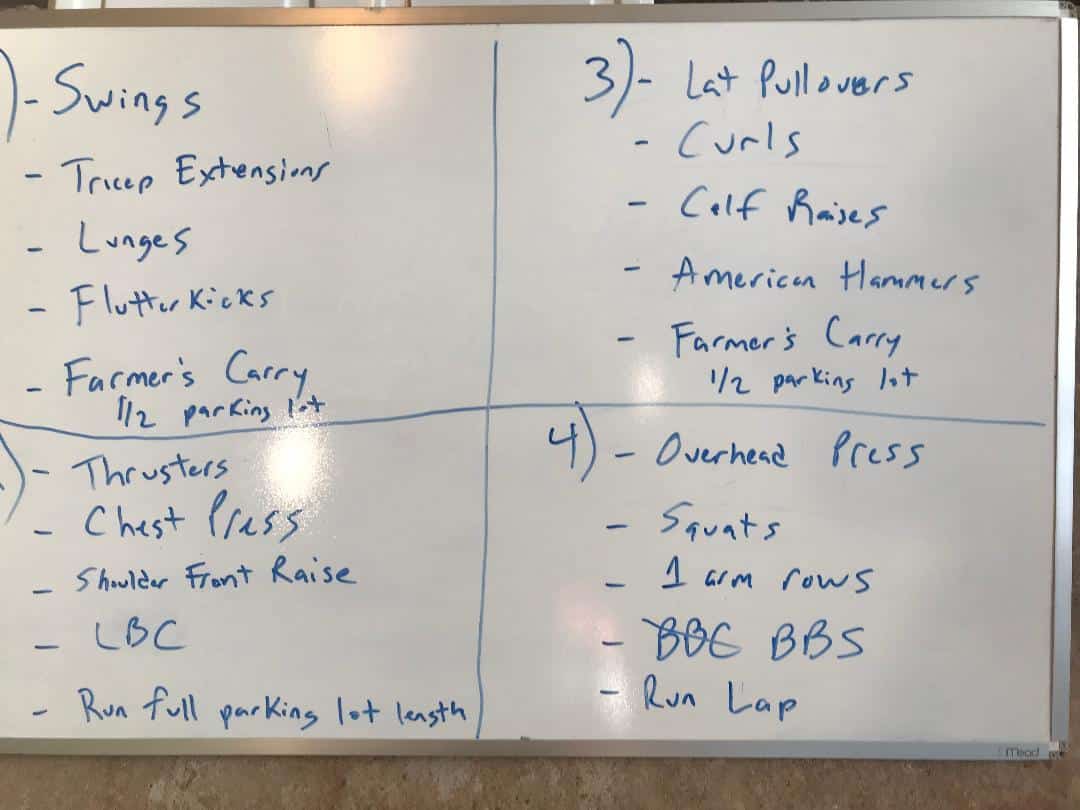 )- Swings
- Tricep Extensions
- Lunges
- Flutter Kicks
- Farmer's Carry
1/2 parking lot
)- Thrusters
- Chest Press
- Shoulder Front Raise
- LBC
- Run full parking lot length
3)- Lat Pullovers
- Curls
- Calf Raises
- American Hammers
- Farmer's Carry
1/2 parking lot
4)- Overhead Press
- Squats
- 1 arm rows
- BBS
- Run Lap
Mead